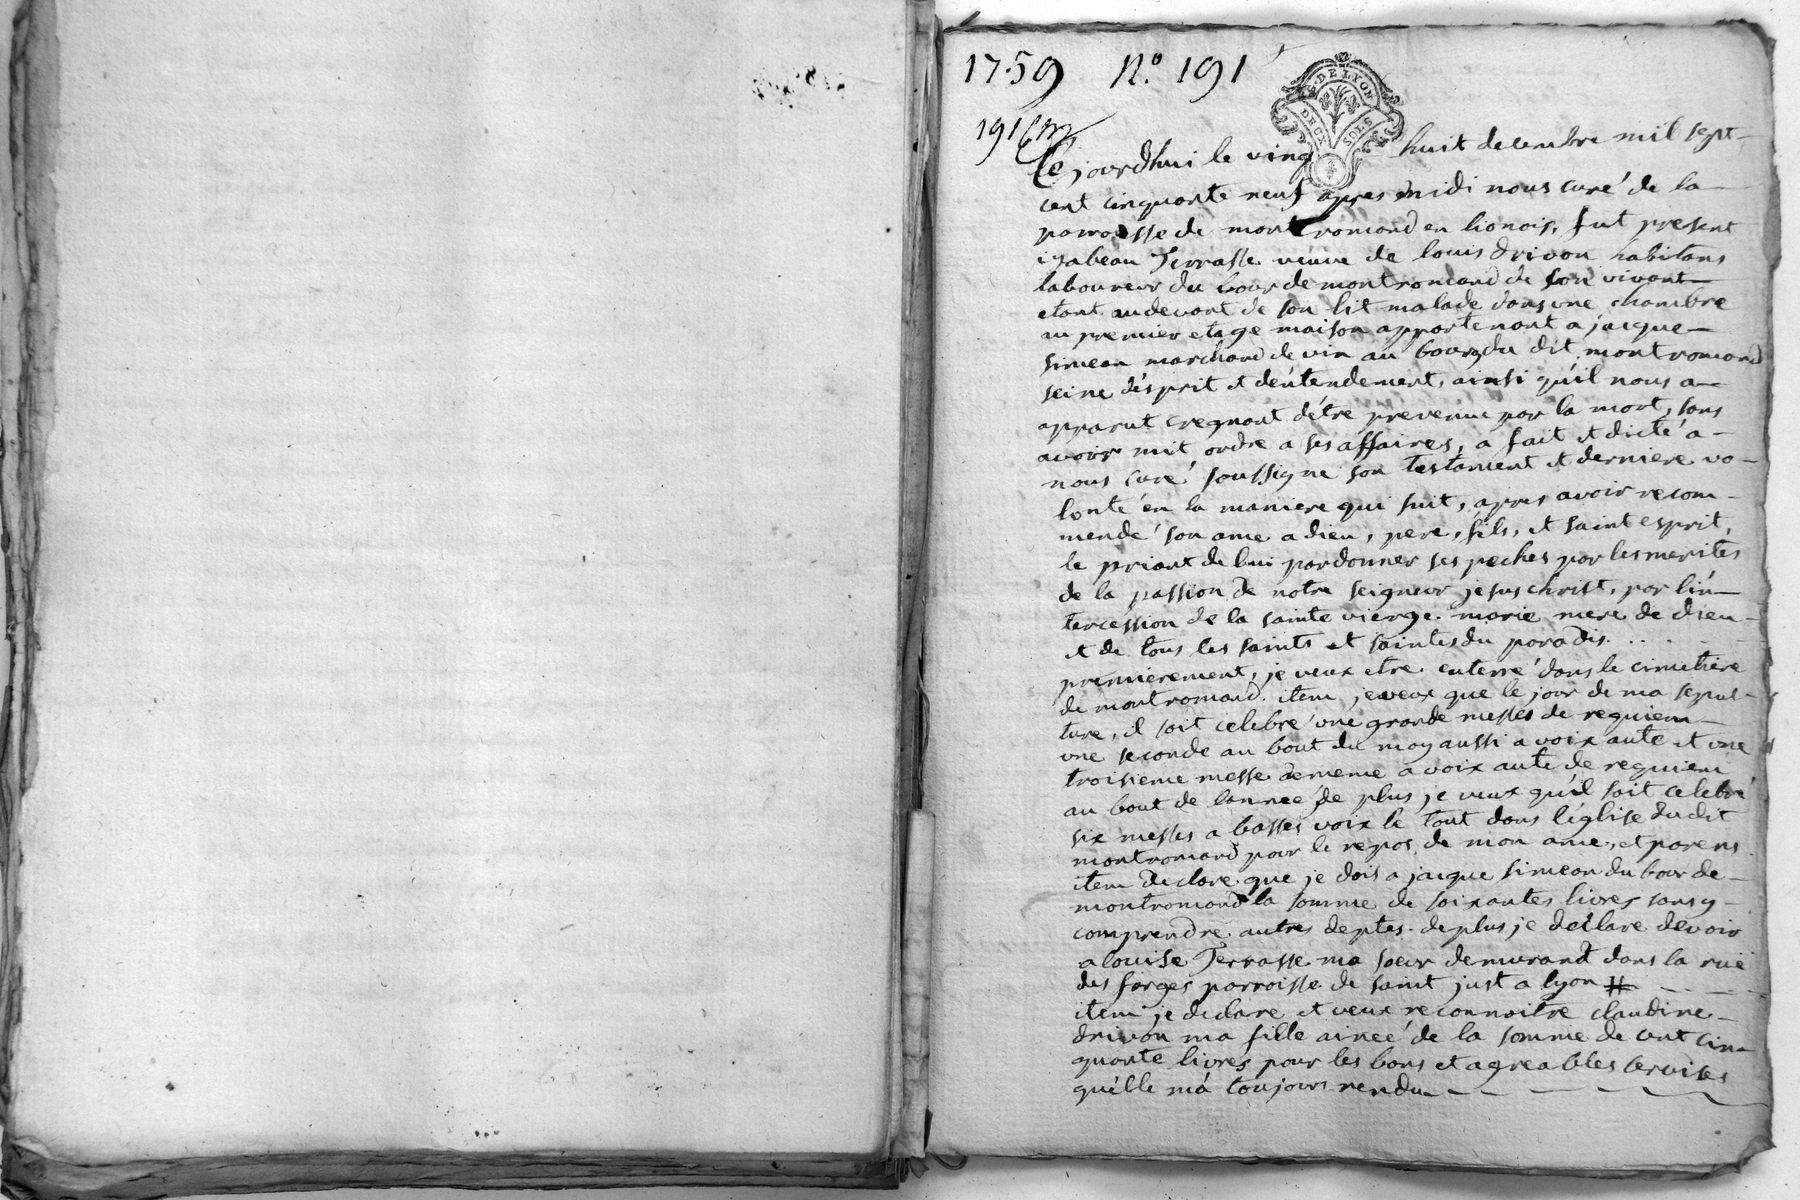 1759 N.o 191
G. DE LYON
DEUX SOLS
191
Ce jourdhui le ving huit decembre mil sept
cent cinquante neuf apres midi nous curé de la
parroisse de montromand en lionois, fut present
izabeau Terrasse veuve de louis drivon habitans
laboureur du bour de montromand de son vivant
etant audevant de son lit malade dans une chambre
au premier etage maison appartenant a jacque
simean marchand de vin au bourg du dit montromand
seine désprit et déntendement, ainsi quil nous a
apparut cregnant détre prevenue par la mort, sans
avoir mit ordre a ses affaires, a fait et dicté a
nous curé soussigne son testament et derniere vo-
lonté én la maniere qui suit, apres avoir recom-
mendé son ame a dieu, pere, fils, et saint esprit,
le priant de lui pardonner ses peches par les merites
de la passion de notre seigneur jesus christ, par lín-
tercession de la sainte vierge marie mere de dieu
et de tous les saints et saintes du paradis. . .
premierement, je veux etre enterré dans le cimetiere
de montromand. item, je veux que le jour de ma sepul-
ture, il soit celebré une grande messes de requiem
une seconde au bout du moy aussi a voix aute et une
troisieme messe de meme a voix aute de requiem
au bout de lannee de plus je veux quil soit celebré
six messes a basses voix le tout dans léglise du dit
montromand pour le repos de mon ame, et parens
item declare que je dois a jacque simean du bour de
montromand la somme de soixantes livres sans y
comprendre autres deptes. de plus je declare devoir
a louise Terrasse ma soeur demurant dans la ruë
des farges parroisse de saint just a lyon #
item je declare et veux reconnoitre claudine
drivon ma fille aineé de la somme de cent cin-
quante livres pour les bons et agreables servises
quélle má toujours rendu